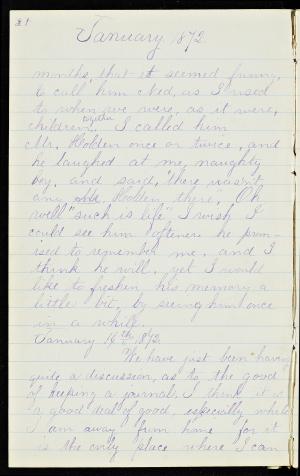 January 1872.
months, that it seemed funny,
to call him Ned, as I used
to when we were, as it were,
children together. I called him
Mr. Holden once or twice, and
he laughed at me, naughty
boy, and said, "there wasn't
any Holden there," Oh
well "such is life," I wish I
could see him oftener he prom-
ised to remember me, and I
think he will, yet I would
like to freshen his memory a
little bit, by seeing him once
in a while.
January 16th, 1872.
We have just been having
quite a discussion, as to the good
of keeping a journal, I think it is
a good deal of good, especially while
I am away from home for it
is the only place where I can